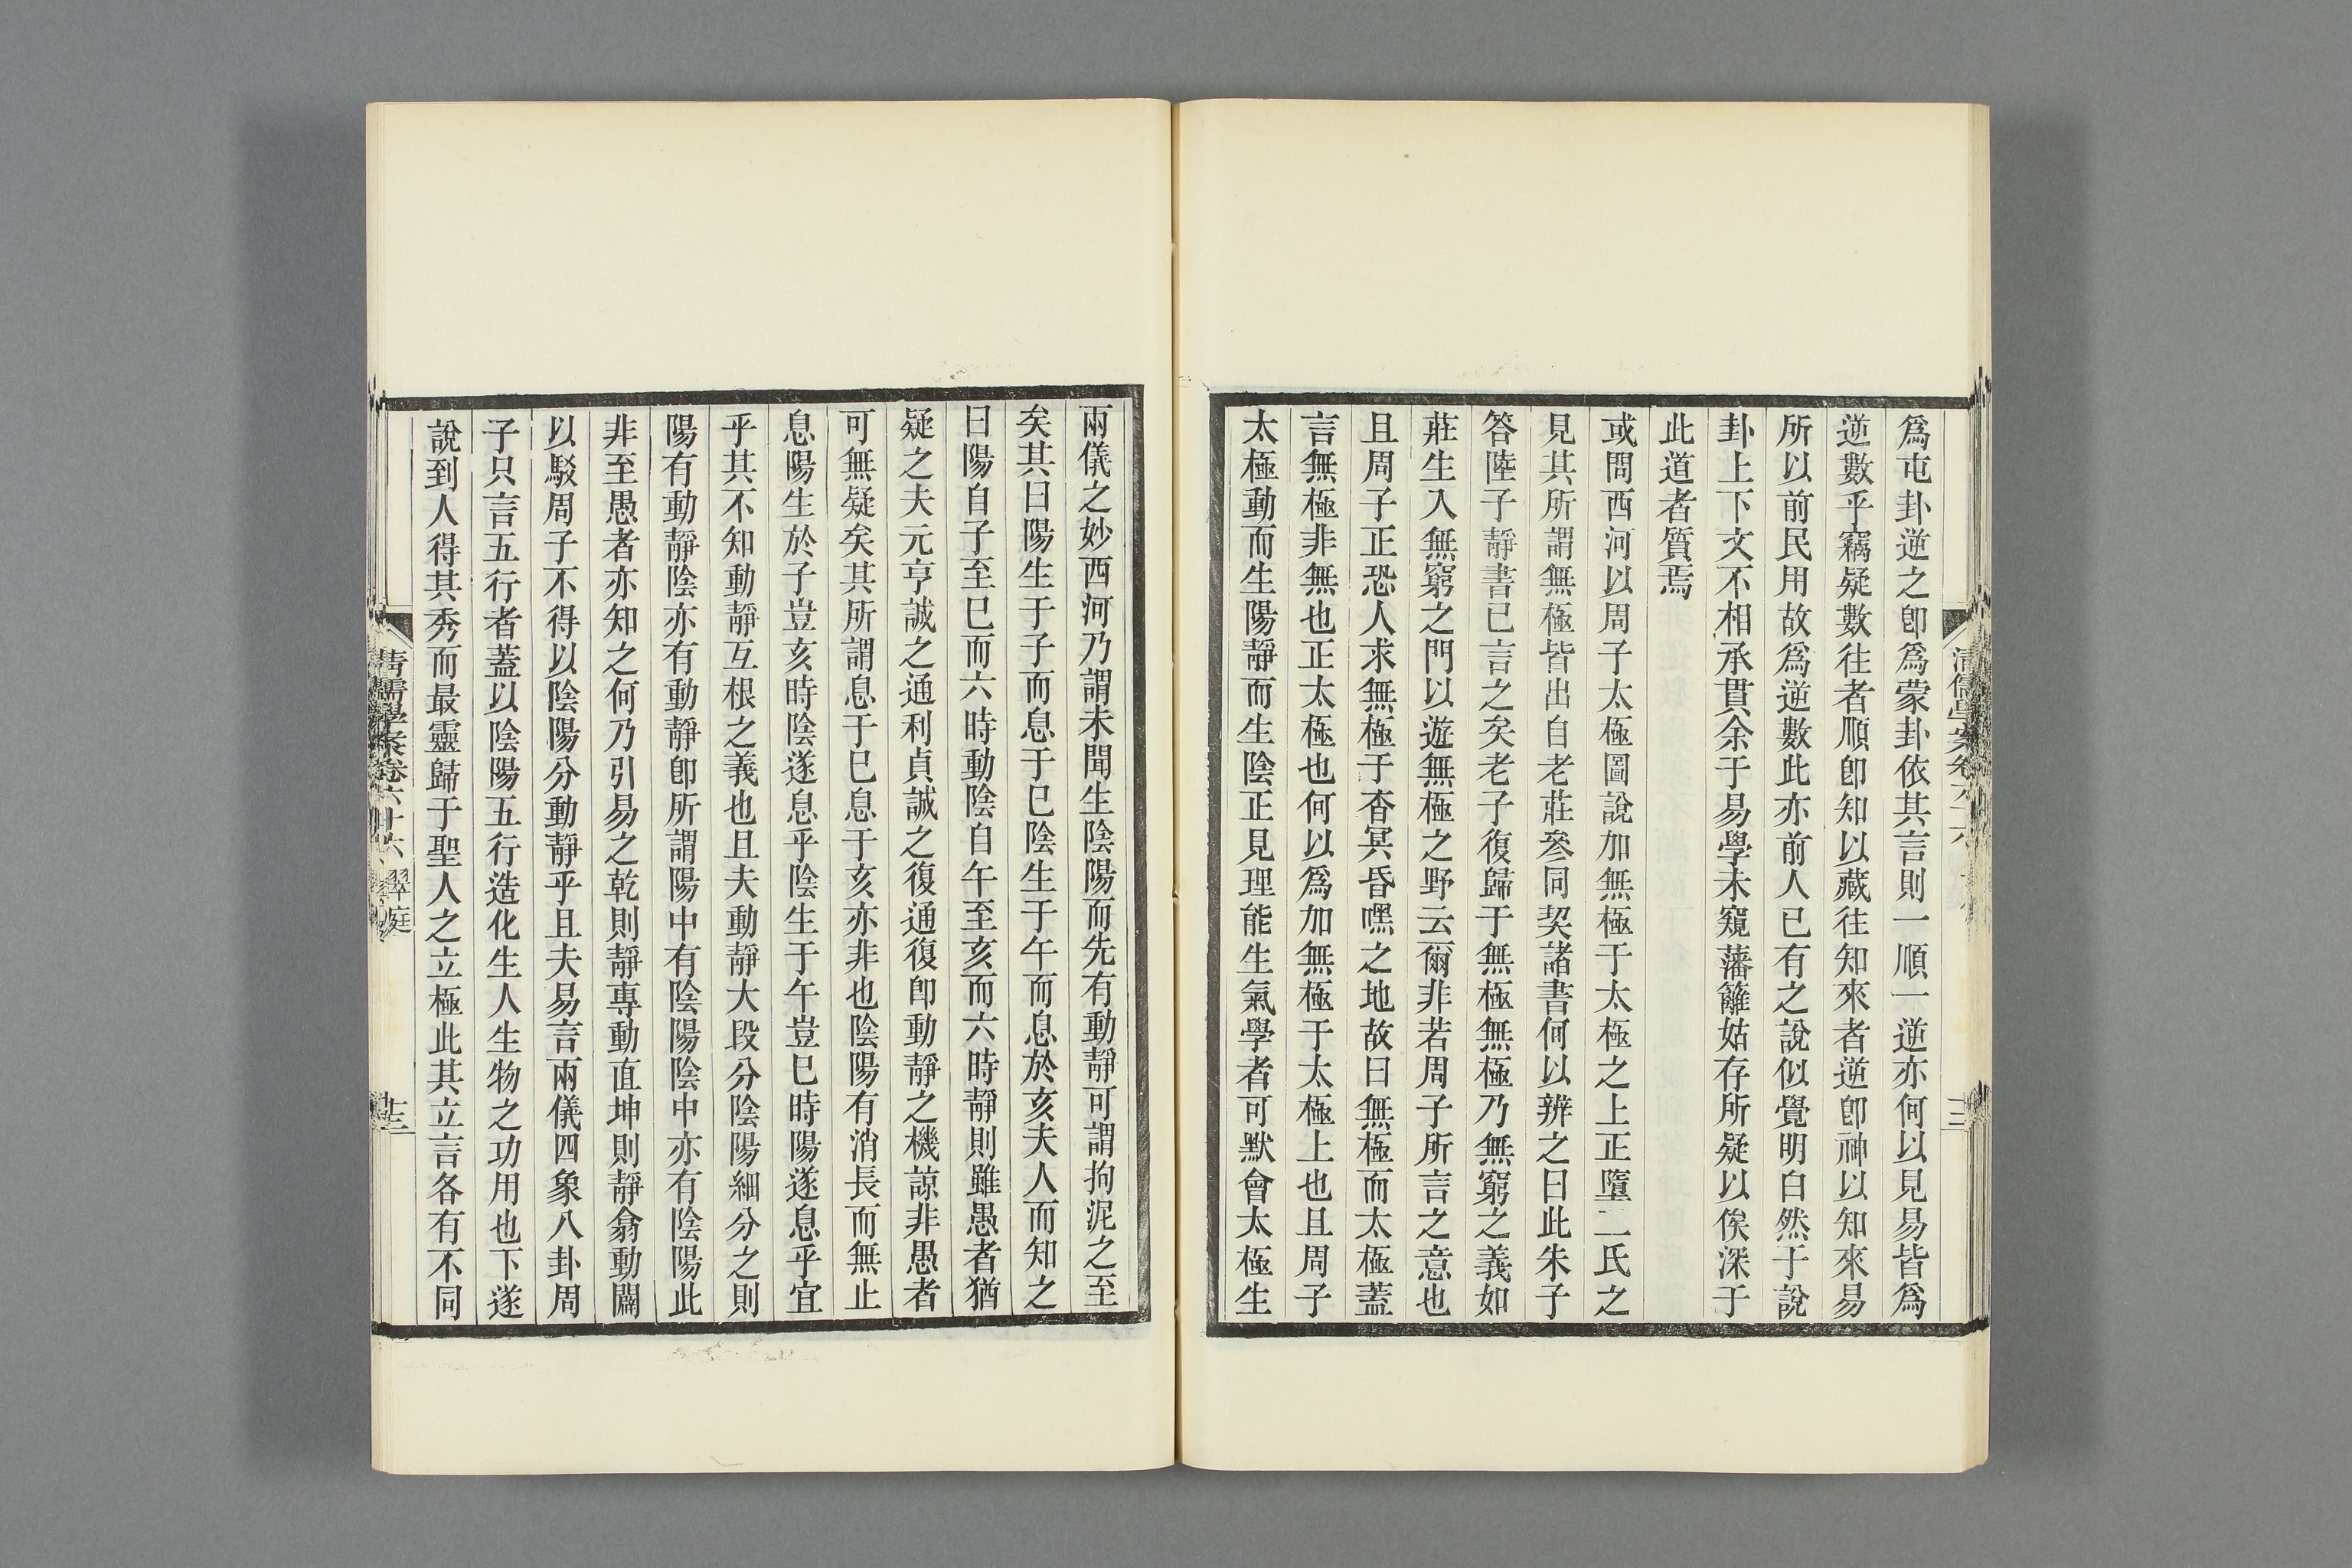 爲屯卦逆之卽爲蒙卦依其言則一順一逆亦何以見易皆爲
逆數乎竊疑數往者順卽知以藏往知來者逆卽神以知來易
所以前民用故爲逆數此亦前人已有之說似覺明白然于說
卦上下文不相承貫余于易學未窺藩籬姑存所疑以俟深于
此道者質焉
或問西河以周子太極圖說加無極于太極之上正墮二氏之
見其所謂無極皆出自老莊參同契諸書何以辨之曰此朱子
答陸子靜書已言之矣老子復歸于無極無極乃無窮之義如
莊生入無窮之門以遊無極之野云爾非若周子所言之意也
且周子正恐人求無極于杳冥昏嘿之地故曰無極而太極蓋
言無極非無也正太極也何以爲加無極于太極上也且周子
太極動而生陽靜而生陰正見理能生氣學者可默會太極生
兩儀之妙西河乃謂未聞生陰陽而先有動靜可謂拘泥之至
矣其曰陽生于子而息于巳陰生于午而息於亥夫人而知之
曰陽自子至巳而六時動陰自午至亥而六時靜則雖愚者猶
疑之夫元亨誠之通利貞誠之復通復卽動靜之機諒非愚者
可無疑矣其所謂息于巳息于亥亦非也陰陽有消長而無止
息陽生於子豈亥時陰遂息乎陰生于午豈巳時陽遂息乎宜
乎其不知動靜互根之義也且夫動靜大段分陰陽細分之則
陽有動靜陰亦有動靜卽所謂陽中有陰陽陰中亦有陰陽此
非至愚者亦知之何乃引易之乾則靜專動直坤則靜翕動闢
以駁周子不得以陰陽分動靜乎且夫易言兩儀四象八卦周
子只言五行者蓋以陰陽五行造化生人生物之功用也下遂
說到人得其秀而最靈歸于聖人之立極此其立言各有不同
清儒學案卷六十六 翠庭
十三